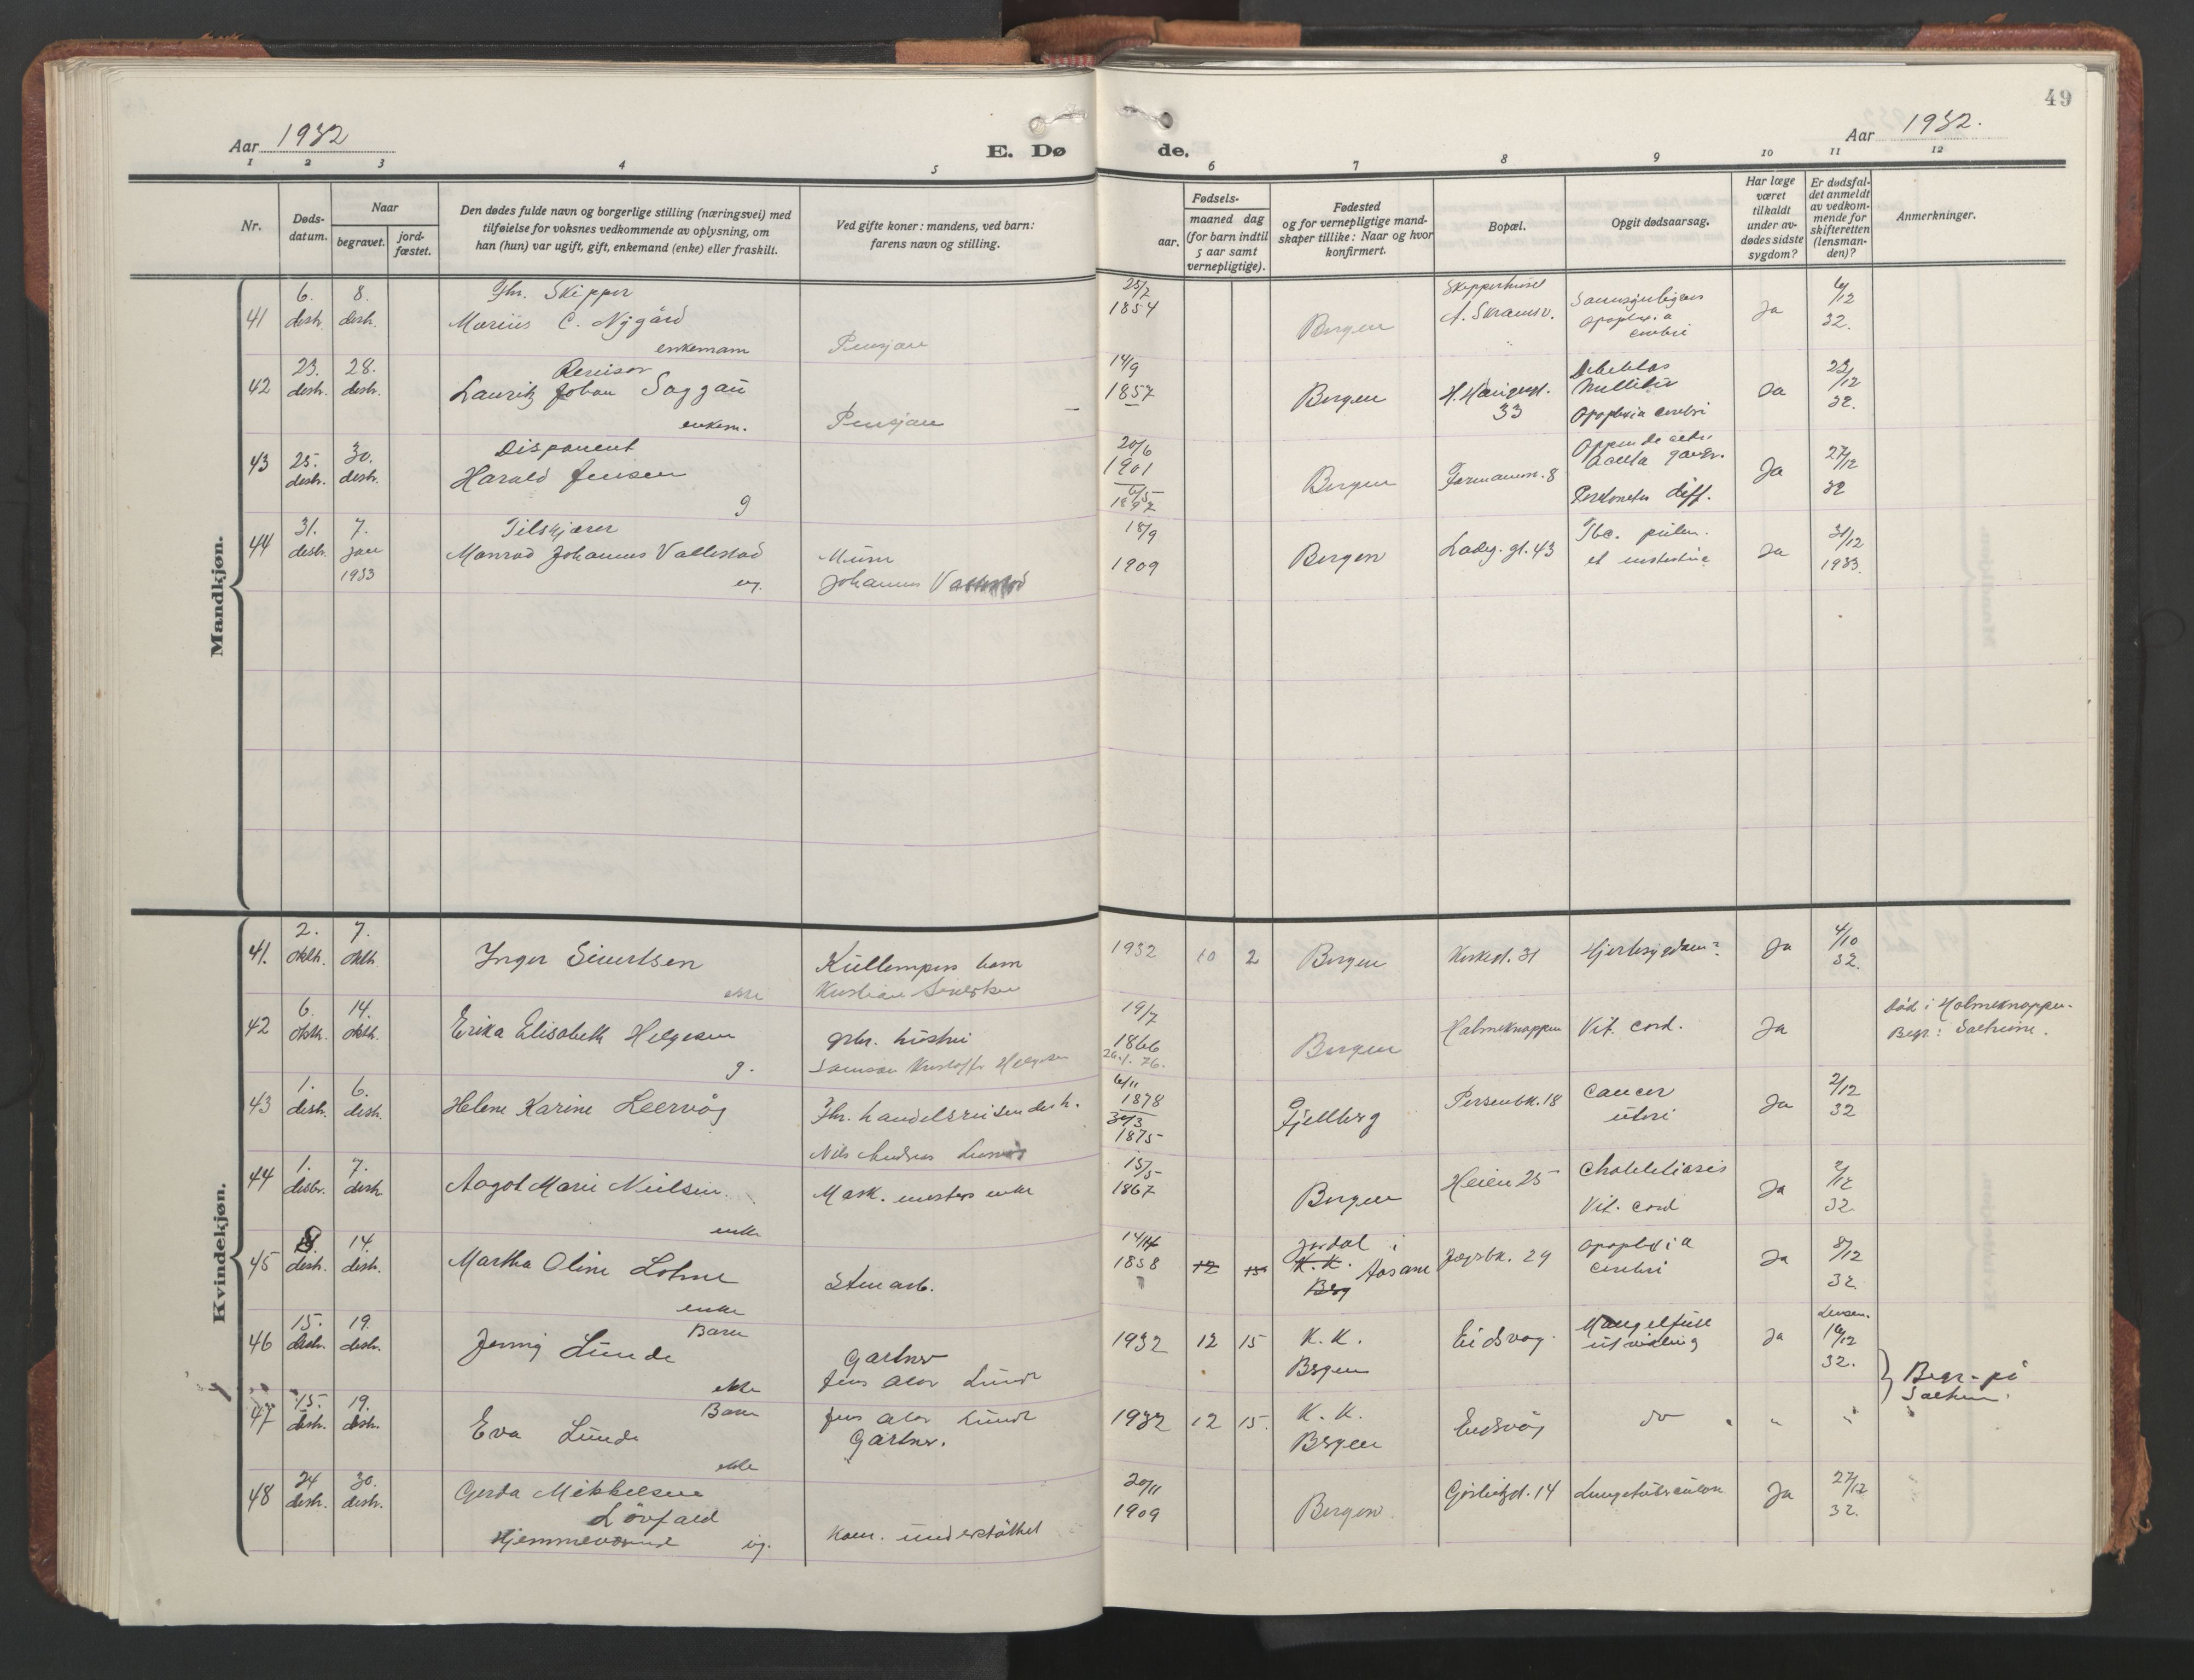 49
Aar 1932
E. Døde.
Aar 1932.
1 2 3 4 5 6 7 8 9 10 11 12
Nr.
Døds-
datum.
Naar
begravet.
jord-
fæstet.
Den dødes fulde navn og borgerlige stilling (næringsvei) med
tilføielse for voksnes vedkommende av oplysning, om
han (hun) var ugift, gift, enkemand (enke) eller fraskilt.
Ved gifte koner: mandens, ved barn:
farens navn og stilling.
Fødsels-
aar.
maaned dag
(for barn indtil
5 aar samt
vernepligtige).
Fødested
og for vernepligtige mand-
skaper tillike: Naar og hvor
konfirmert.
Bopæl.
Opgit dødsaarsag.
Har læge
været
tilkaldt
under av-
dødes sidste
sygdom?
Er dødsfal-
det anmeldt
av vedkom-
mende for
skifteretten
(lensman-
den)?
Anmerkninger.
Mandkjøn.
41
6. desbr.
8. desbr.
Fhr. Skipper
Marius C. Nygård
enkemann
Pensjon
25/2
1854
Bergen
Skipperhuset
apoplexia
cerebri
Ja
6/12
32.
42
23. desbr.
28. desbr.
Revisor
Lauritz Johan Saggau
enkem.
Pensjon
14/9
1857
Bergen
H. Haugesgt.
33
Diabetes
Mellitus
Apoplexia cerebri
Ja
23/12
32.
43
25. desbr.
30. desbr.
Disponent
Harald Jensen
g
20/6
1901
6/5
1897
Bergen
Formannsv. 8
Peritonitis diff.
Ja
27/12
32
44
31. desbr.
7. jan
1933
Tilskjærer
Monrad Johannes Vallestad
ug.
Murer
Johannes Vallestad
18/9
1909
Bergen
Ladeg. gt. 43
Tbc. pulm.
et intestina
Ja
31/12
1933.
Kvindekjøn.
41.
2. oktb.
7. oktb
Inger Sivertsen
ekte
Kristian Sivertsen
1932 10 2
Bergen
Kirkegt. 31
Hjertesygdom?
Ja
4/10
32.
42
6. oktb.
14. oktb.
Erika Elisabeth Helgesen
g.
grbr. hustru
Samson Kristoffer Helgesen
19/7
1866
26.1.76.
Bergen
Holmeknappen
Vit. cord.
Ja
Død i Holmeknappen.
Begr: Salhus.
43
1. desbr.
6. desbr.
Helene Karine Leervåg
Fhr. handelsreisendes h.
Nils Andreas
6/11
1878
30/3
1875
Fjellberg
Persenbk. 18
Cancer
uteri
Ja
2/12
32
44
1. desbr.
7. desbr.
Aagot Marie Nielsen
enke
Mask. mesters enke
15/5
1867
Bergen
Heien 25
Cholelitiasis
Vit. cord
Ja
2/12
32
45
8. desbr.
14. desbr.
Martha Oline Lohne
enke
Stenarb.
14/14
1858 12 15
Jordal i
K. K. Aasane
Berg
Jægersbk. 29
apoplexia
cerebri
Ja
8/12
32.
46
15. desbr.
19. desbr.
Barn
Jenny Lunde
ekte
Gartner
Jens Alor Lunde
1932 12 15
K. K.
Bergen
Eidsvåg
Mangelfull
utvikling
Ja
Lensm.
16/12
32.
Begr. på
Salhus.
47
15. desbr.
19. desbr.
Barn
Eva Lunde
ekte
Jens Alor Lunde
Gartner.
1932 12 15.
K. K.
Bergen
Eidsvåg
do " "
48
24 desbr.
30. desbr.
Gerda Mikkelsen
Løvfald
Hjemmeværende ug.
Kom. understøttet
20/11
1909
Bergen.
Lungetuberculose
Ja
27/12
32.